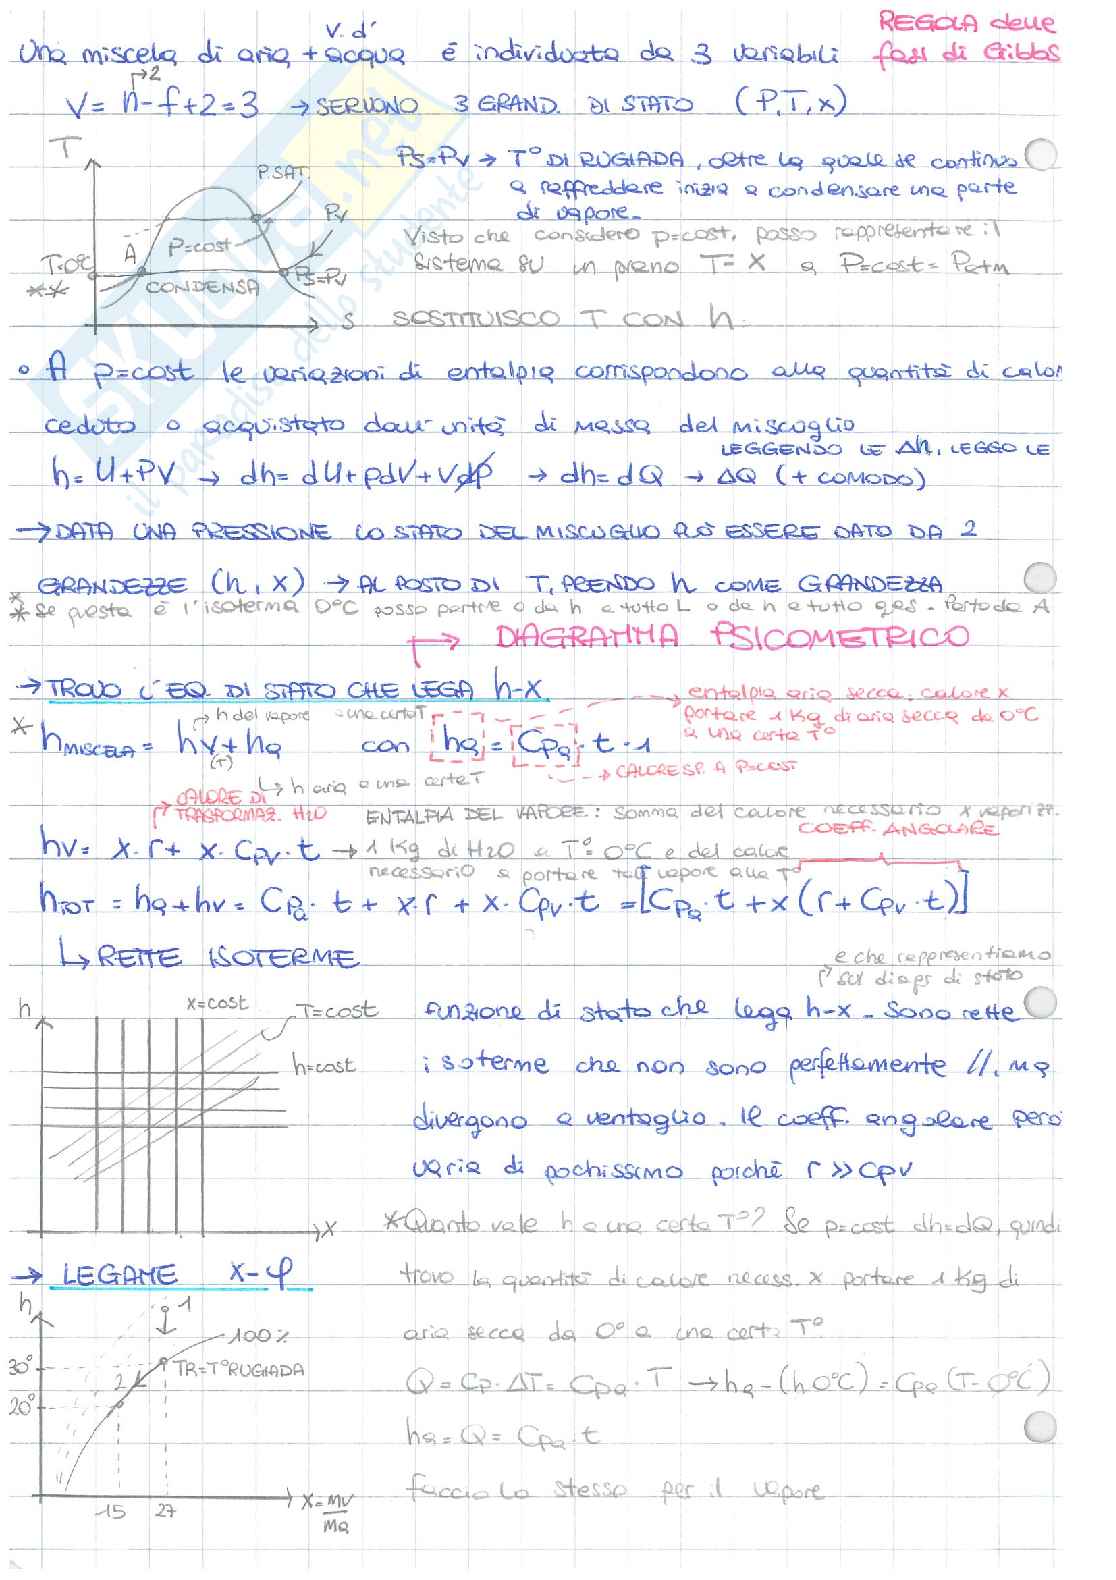 REGOLA delle
fasi di Gibbs
v. d'
Una miscela di aria + acqua è individuata da 3 variabili
2
V = n-f+2=3 → SERVONO 3 GRAND. DI STATO (P,T,x)
T
P.SAT.
Pv
A
P=cost
T=0°C
**
CONDENSA
Ps=Pv
S
Ps=Pv → T° DI RUGIADA, oltre la quale se continuo
a raffreddare inizia a condensare una parte
di vapore.
Visto che considero p=cost, posso rappresentare il
sistema su un piano T-X a P=cost=Patm
SOSTITUISCO T CON h.
• A p=cost le variazioni di entalpia corrispondono alla quantità di calor
ceduto o acquistato dall'unità di massa del miscuglio
LEGGENDO LE Δh, LEGGO LE
h= U+PV → dh= dU+pdV+Vdp → dh=dQ → ΔQ (+ COMODO)
→ DATA UNA PRESSIONE LO STATO DEL MISCUGLIO PUÒ ESSERE DATO DA 2
GRANDEZZE (h, x) → AL POSTO DI T, PRENDO h COME GRANDEZZA
** Se questa è l'isoterma 0°C posso partire o da h a tutto L o da h a tutto gas. Parto da A
→ DIAGRAMMA PSICOMETRICO
→ TROVO L'EQ. DI STATO CHE LEGA h-X
→ entalpia aria secca: calore x
portare 1 Kg di aria secca da 0°C
a una certa T°
→ h del vapore a una certa T
* hMISCELA = hv + ha con ha = Cpa · t · 1
(T)
→ CALORE SP. A P=COST
↳ h aria a una certa T
CALORE DI
TRASFORMAZ. H2O
ENTALPIA DEL VAPORE: Somma del calore necessario x vaporizz.
COEFF. ANGOLARE
hv = x·r + x·Cpv·t → 1 Kg di H2O a T°=0°C e del calore
necessario a portare tale vapore alla T°
hTOT = ha+hv = Cpa·t + x·r + x·Cpv·t = [Cpa·t + x(r+Cpv·t)]
↳ RETTE ISOTERME
e che rappresentiamo
sul diagr di stato
h
x=cost
T=cost
h=cost
X
funzione di stato che lega h-x. Sono rette
isoterme che non sono perfettamente //, ma
divergono a ventaglio. Il coeff. angolare però
varia di pochissimo poichè r >> Cpv
* Quanto vale h a una certa T°? Se p=cost dh=dQ, quindi
→ LEGAME X-φ
trovo la quantità di calore necess. x portare 1 Kg di
aria secca da 0° a una certa T°
Q = Cp·ΔT = Cpa·T → ha-(h0°C) = Cpa(T-0°C)
ha = Q = Cpa·t
faccio lo stesso per il vapore
h
1
100%
30°
TR=T°RUGIADA
2
20°
15
27
X = Mv/Ma